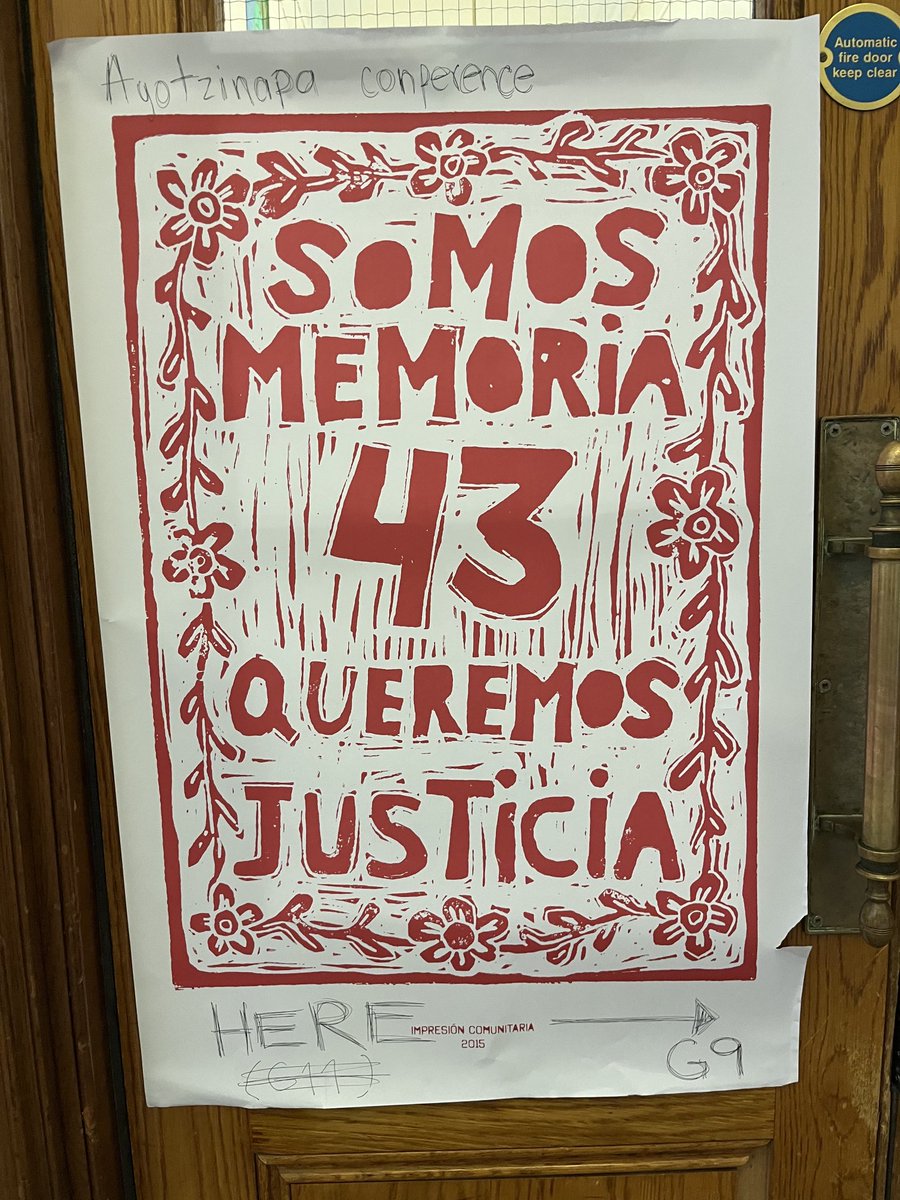 Ayotzinapa conference
Automatic
fire door
keep clear
SOMOS
MEMORIA
43
QUEREMOS
JUSTICIA
HERE
IMPRESIÓN COMUNITARIA
2015
(G11)
G9